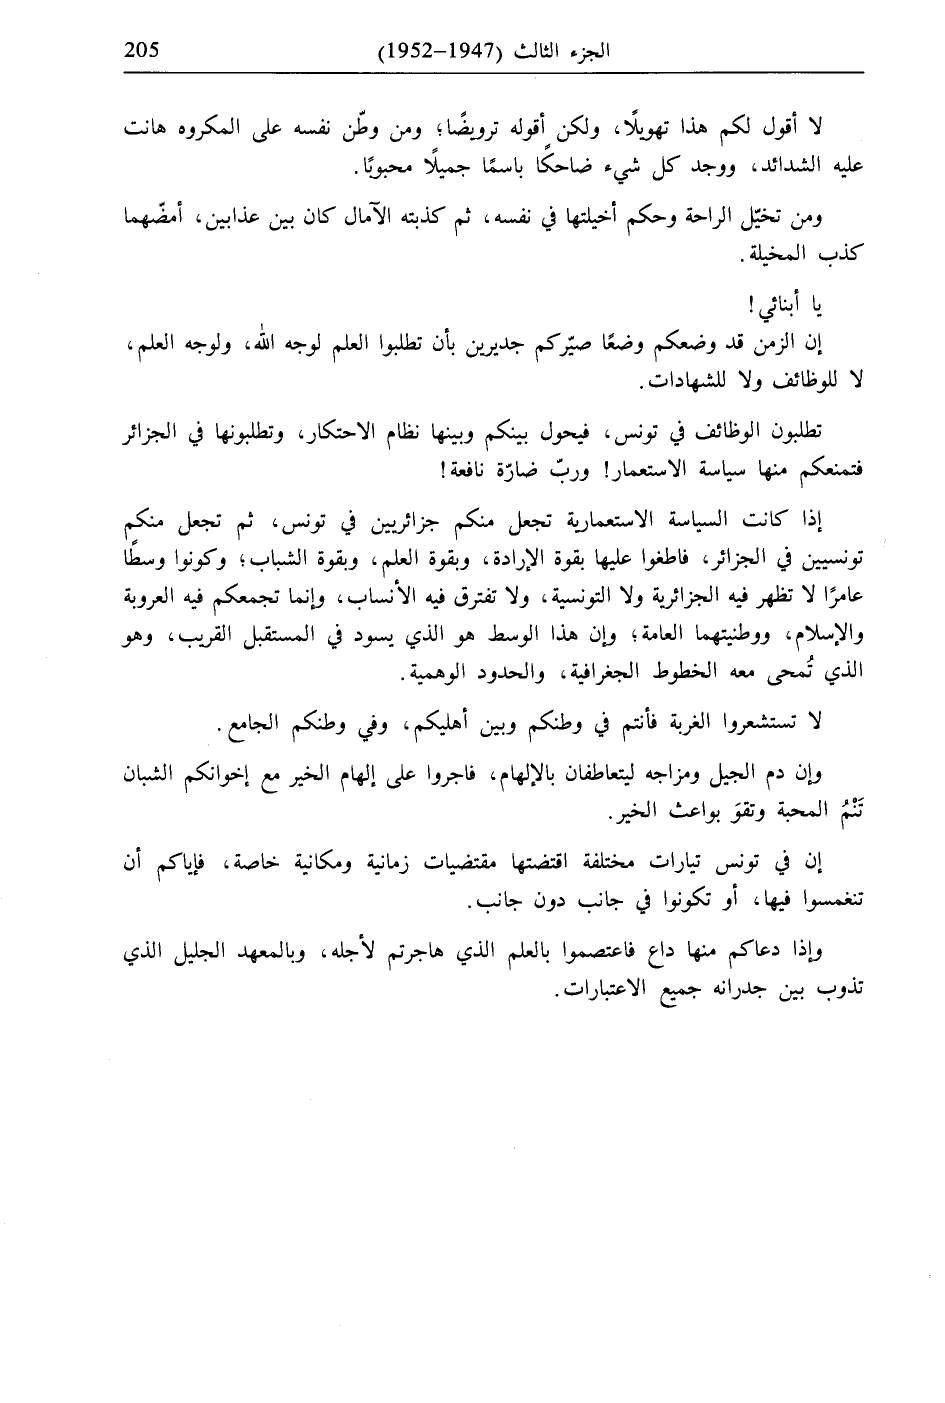 الجزء الثالث (1947–1952) 205
لا أقول لكم هذا تهويلًا، ولكن أقوله ترويضًا؛ ومن وطّن نفسه على المكروه هانت
عليه الشدائد، ووجد كل شيء ضاحكًا باسمًا جميلًا محبوبًا.
ومن تخيّل الراحة وحكم أخيلتها في نفسه، ثم كذبته الآمال كان بين عذابين، أمضّهما
كذب المخيلة.
يا أبنائي!
إن الزمن قد وضعكم وضعًا صيّركم جديرين بأن تطلبوا العلم لوجه الله، ولوجه العلم،
لا للوظائف ولا للشهادات.
تطلبون الوظائف في تونس، فيحول بينكم وبينها نظام الاحتكار، وتطلبونها في الجزائر
فتمنعكم منها سياسة الاستعمار! وربّ ضارّة نافعة!
إذا كانت السياسة الاستعمارية تجعل منكم جزائريين في تونس، ثم تجعل منكم
تونسيين في الجزائر، فاطغوا عليها بقوة الإرادة، وبقوة العلم، وبقوة الشباب؛ وكونوا وسطًا
عامرًا لا تظهر فيه الجزائرية ولا التونسية، ولا تفترق فيه الأنساب، وإنما تجمعكم فيه العروبة
والإسلام، ووطنيتهما العامة؛ وإن هذا الوسط هو الذي يسود في المستقبل القريب، وهو
الذي تُمحى معه الخطوط الجغرافية، والحدود الوهمية.
لا تستشعروا الغربة فأنتم في وطنكم وبين أهليكم، وفي وطنكم الجامع.
وإن دم الجيل ومزاجه ليتعاطفان بالإلهام، فاجروا على إلهام الخير مع إخوانكم الشبان
تَنْمُ المحبة وتقوَ بواعث الخير.
إن في تونس تيارات مختلفة اقتضتها مقتضيات زمانية ومكانية خاصة، فإياكم أن
تنغمسوا فيها، أو تكونوا في جانب دون جانب.
وإذا دعاكم منها داع فاعتصموا بالعلم الذي هاجرتم لأجله، وبالمعهد الجليل الذي
تذوب بين جدرانه جميع الاعتبارات.